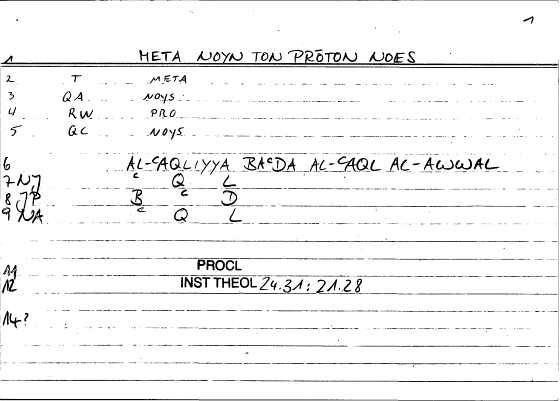 1
1 META NOYN TON PRŌTON NOES
2 T META
3 QA NOYS
4 RW PRO
5 QC NOYS
6 AL-ᶜAQLIYYA BAᶜDA AL-ᶜAQL AL-AWWAL
7 NJ ᶜ Q L
8 JP B ᶜ D
9 NA ᶜ Q L
11 PROCL
12 INST THEOL 24.31 : 21.28
14?